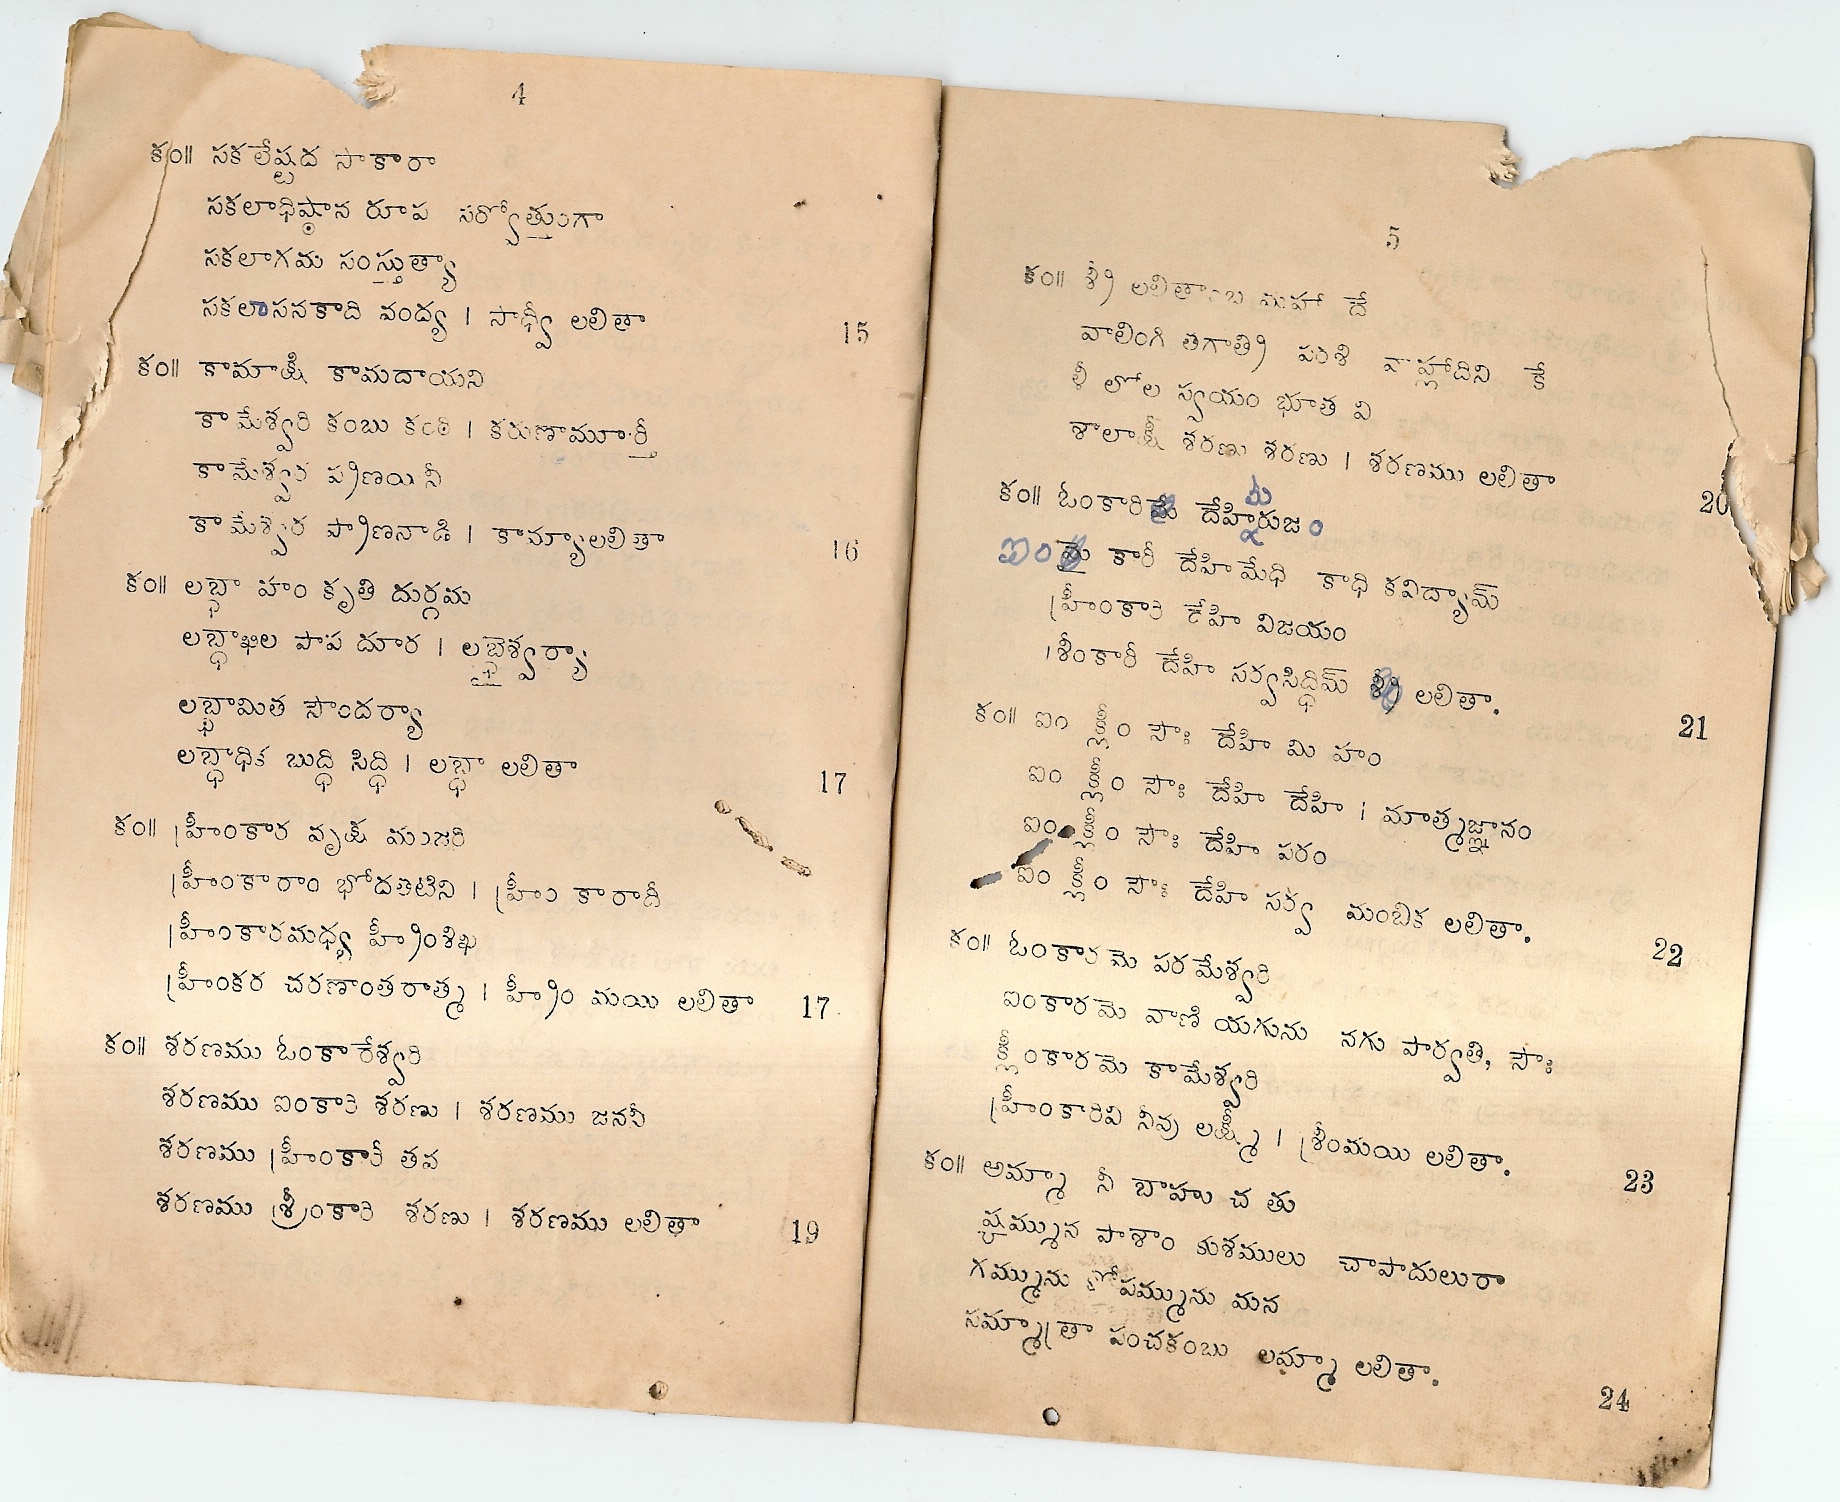 4
కం॥ సకలేష్టద సాకారా
సకలాధిష్ఠాన రూప సర్వోత్తుంగా
సకలాగమ సంస్తుత్యా
సకలాసనకాది వంద్య । సాధ్వీ లలితా
15
కం॥ కామాక్షీ కామదాయని
కామేశ్వరి కంబు కంఠి । కరుణామూర్తీ
కామేశ్వర ప్రణయినీ
కామేశ్వర ప్రాణనాడి । కామ్యాలలితా
16
కం॥ లబ్ధా హం కృతి దుర్గమ
లబ్ధాఖిల పాప దూర । లబ్ధైశ్వర్యా
లబ్ధామిత సౌందర్యా
లబ్ధాధిక బుద్ధి సిద్ధి । లబ్ధా లలితా
17
కం॥ హ్రీంకార వృక్ష మంజరి
హ్రీంకారాం భోదతటిని । హ్రీం కారాదీ
హ్రీంకారమధ్య హ్రీంశిఖ
హ్రీంకర చరణాంతరాత్మ । హ్రీం మయి లలితా
17
కం॥ శరణము ఓంకారేశ్వరి
శరణము ఐంకారి శరణు । శరణము జననీ
శరణము హ్రీంకారీ తవ
శరణము శ్రీంకారి శరణు । శరణము లలితా
19
5
కం॥ శ్రీ లలితాంబ మహా దే
వాలింగి తగాత్రి పరశి వాహ్లాదిని కే
ళీ లోల స్వయం భూత వి
శాలాక్షీ శరణు శరణు । శరణము లలితా
20
కం॥ ఓంకారి దేహి రుజం
ఐం కారీ దేహి మేధి కాధి కవిద్యామ్
హ్రీంకారి దేహి విజయం
శ్రీంకారీ దేహి సర్వసిద్ధిమ్ శ్రీ లలితా.
21
కం॥ ఐం క్లీం సౌః దేహి మి హం
ఐం క్లీం సౌః దేహి దేహి । మాత్మజ్ఞానం
ఐం క్లీం సౌః దేహి పరం
ఐం క్లీం సౌః దేహి సర్వ మంబిక లలితా.
22
కం॥ ఓంకారమె పరమేశ్వరి
ఐంకారమె వాణి యగును నగు పార్వతి, సౌః
క్లీంకారమె కామేశ్వరి
హ్రీంకారివి నీవు లక్ష్మీ । శ్రీంమయి లలితా.
23
కం॥ అమ్మా నీ బాహు చ తు
ష్టమ్మున పాశాం కుశములు చాపాదులురా
గమ్మును కోపమ్మును మన
సమ్మాత్రా పంచకంబు లమ్మా లలితా.
24